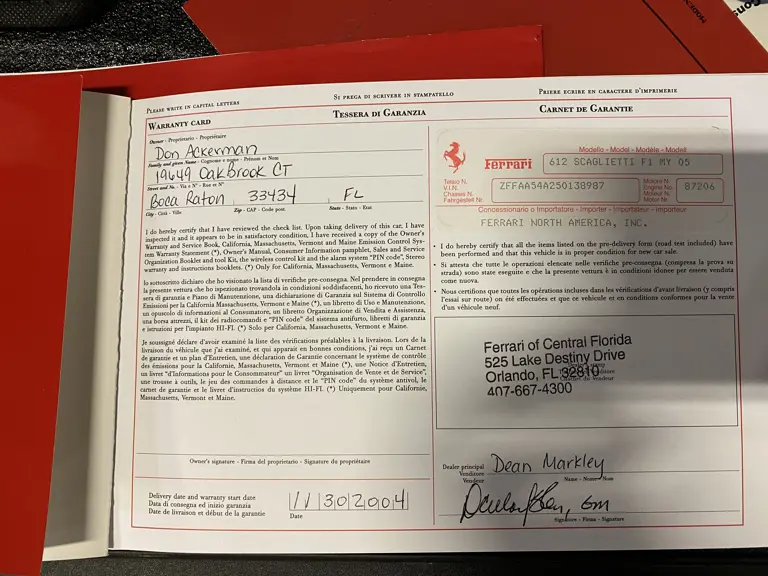 Please write in capital letters
Si prega di scrivere in stampatello
Priere ecrire en caractere d'imprimerie
Warranty card
Tessera di Garanzia
Carnet de Garantie
Owner - Proprietario - Propriétaire
Don Ackerman
Family and given Name - Cognome e nome - Prénom et Nom
19649 Oakbrook CT
Street and No. - Via e N° - Rue et N°
Boca Raton 33434 FL
City - Città - Ville Zip - CAP - Code post. State - Stato - Etat
I do hereby certify that I have reviewed the check list. Upon taking delivery of this car, I have
inspected it and it appears to be in satisfactory condition, I have received a copy of the Owner's
Warranty and Service Book, California, Massachusetts, Vermont and Maine Emission Control Sys-
tem Warranty Statement (*), Owner's Manual, Consumer Information pamphlet, Sales and Service
Organization Booklet and tool Kit, the wireless control kit and the alarm system "PIN code", Stereo
warranty and instructions booklets. (*) Only for California, Massachusetts, Vermont e Maine.
Io sottoscritto dichiaro che ho visionato la lista di verifiche pre-consegna. Nel prendere in consegna
la presente vettura che ho ispezionato trovandola in condizioni soddisfacenti, ho ricevuto una Tes-
sera di garanzia e Piano di Manutenzione, una dichiarazione di Garanzia sul Sistema di Controllo
Emissioni per la California, Massachusetts, Vermont e Maine (*), un libretto di Uso e Manutenzione,
un opuscolo di informazioni al Consumatore, un libretto Organizzazione di Vendita e Assistenza,
una borsa attrezzi, il kit dei radiocomandi e "PIN code" del sistema antifurto, libretti di garanzia
e istruzioni per l'impianto HI-FI. (*) Solo per California, Massachusetts, Vermont e Maine.
Je soussigné déclare avoir examiné la liste des vérifications préalables à la livraison. Lors de la
livraison du véhicule que j'ai examiné, et qui apparait en bonnes conditions, j'ai reçu un Carnet
de garantie et un plan d'Entretien, une déclaration de Garantie concernant le système de contrôle
des émissions pour la Californie, Massachusetts, Vermont et Maine (*), une Notice d'Entretien,
un livret "d'Informations pour le Consommateur" un livret "Organisation de Vente et de Service",
une trousse à outils, le jeu des commandes à distance et le "PIN code" du système antivol, le
carnet de garantie et le livret d'instruction du système HI-FI. (*) Uniquement pour Californie,
Massachusetts, Vermont et Maine.
Owner's signature - Firma del proprietario - Signature du propriétaire
Delivery date and warranty start date
Data di consegna ed inizio garanzia
Date de livraison et début de la garantie
11302004
Date
Modello - Model - Modèle - Modell
Ferrari 612 SCAGLIETTI F1 MY 05
Telaio N.
V.I.N.
Chassis N.
Fahrgestell Nr.
ZFFAA54A250138987
Motore N.
Engine No.
Moteur N.
Motor Nr
87206
Concessionario o Importatore - Importer - Importateur - Importeur
FERRARI NORTH AMERICA, INC.
• I do hereby certify that all the items listed on the pre-delivery form (road test included) have
been performed and that this vehicle is in proper condition for new car sale.
• Si attesta che tutte le operazioni elencate nelle verifiche pre-consegna (compresa la prova su
strada) sono state eseguite e che la presente vettura è in condizioni idonee per essere venduta
come nuova.
• Nous certifions que toutes les opérations incluses dans les vérifications d'avant livraison (y compris
l'essai sur route) on été effectuées et que ce vehicule et en conditions conformes pour la vente
d'un véhicule neuf.
Ferrari of Central Florida
525 Lake Destiny Drive
Orlando, FL 32810
407-667-4300
Dealer principal
Venditore
Vendeur
Dean Markley
Name - Nome - Nom
GM
Signature - Firma - Signature